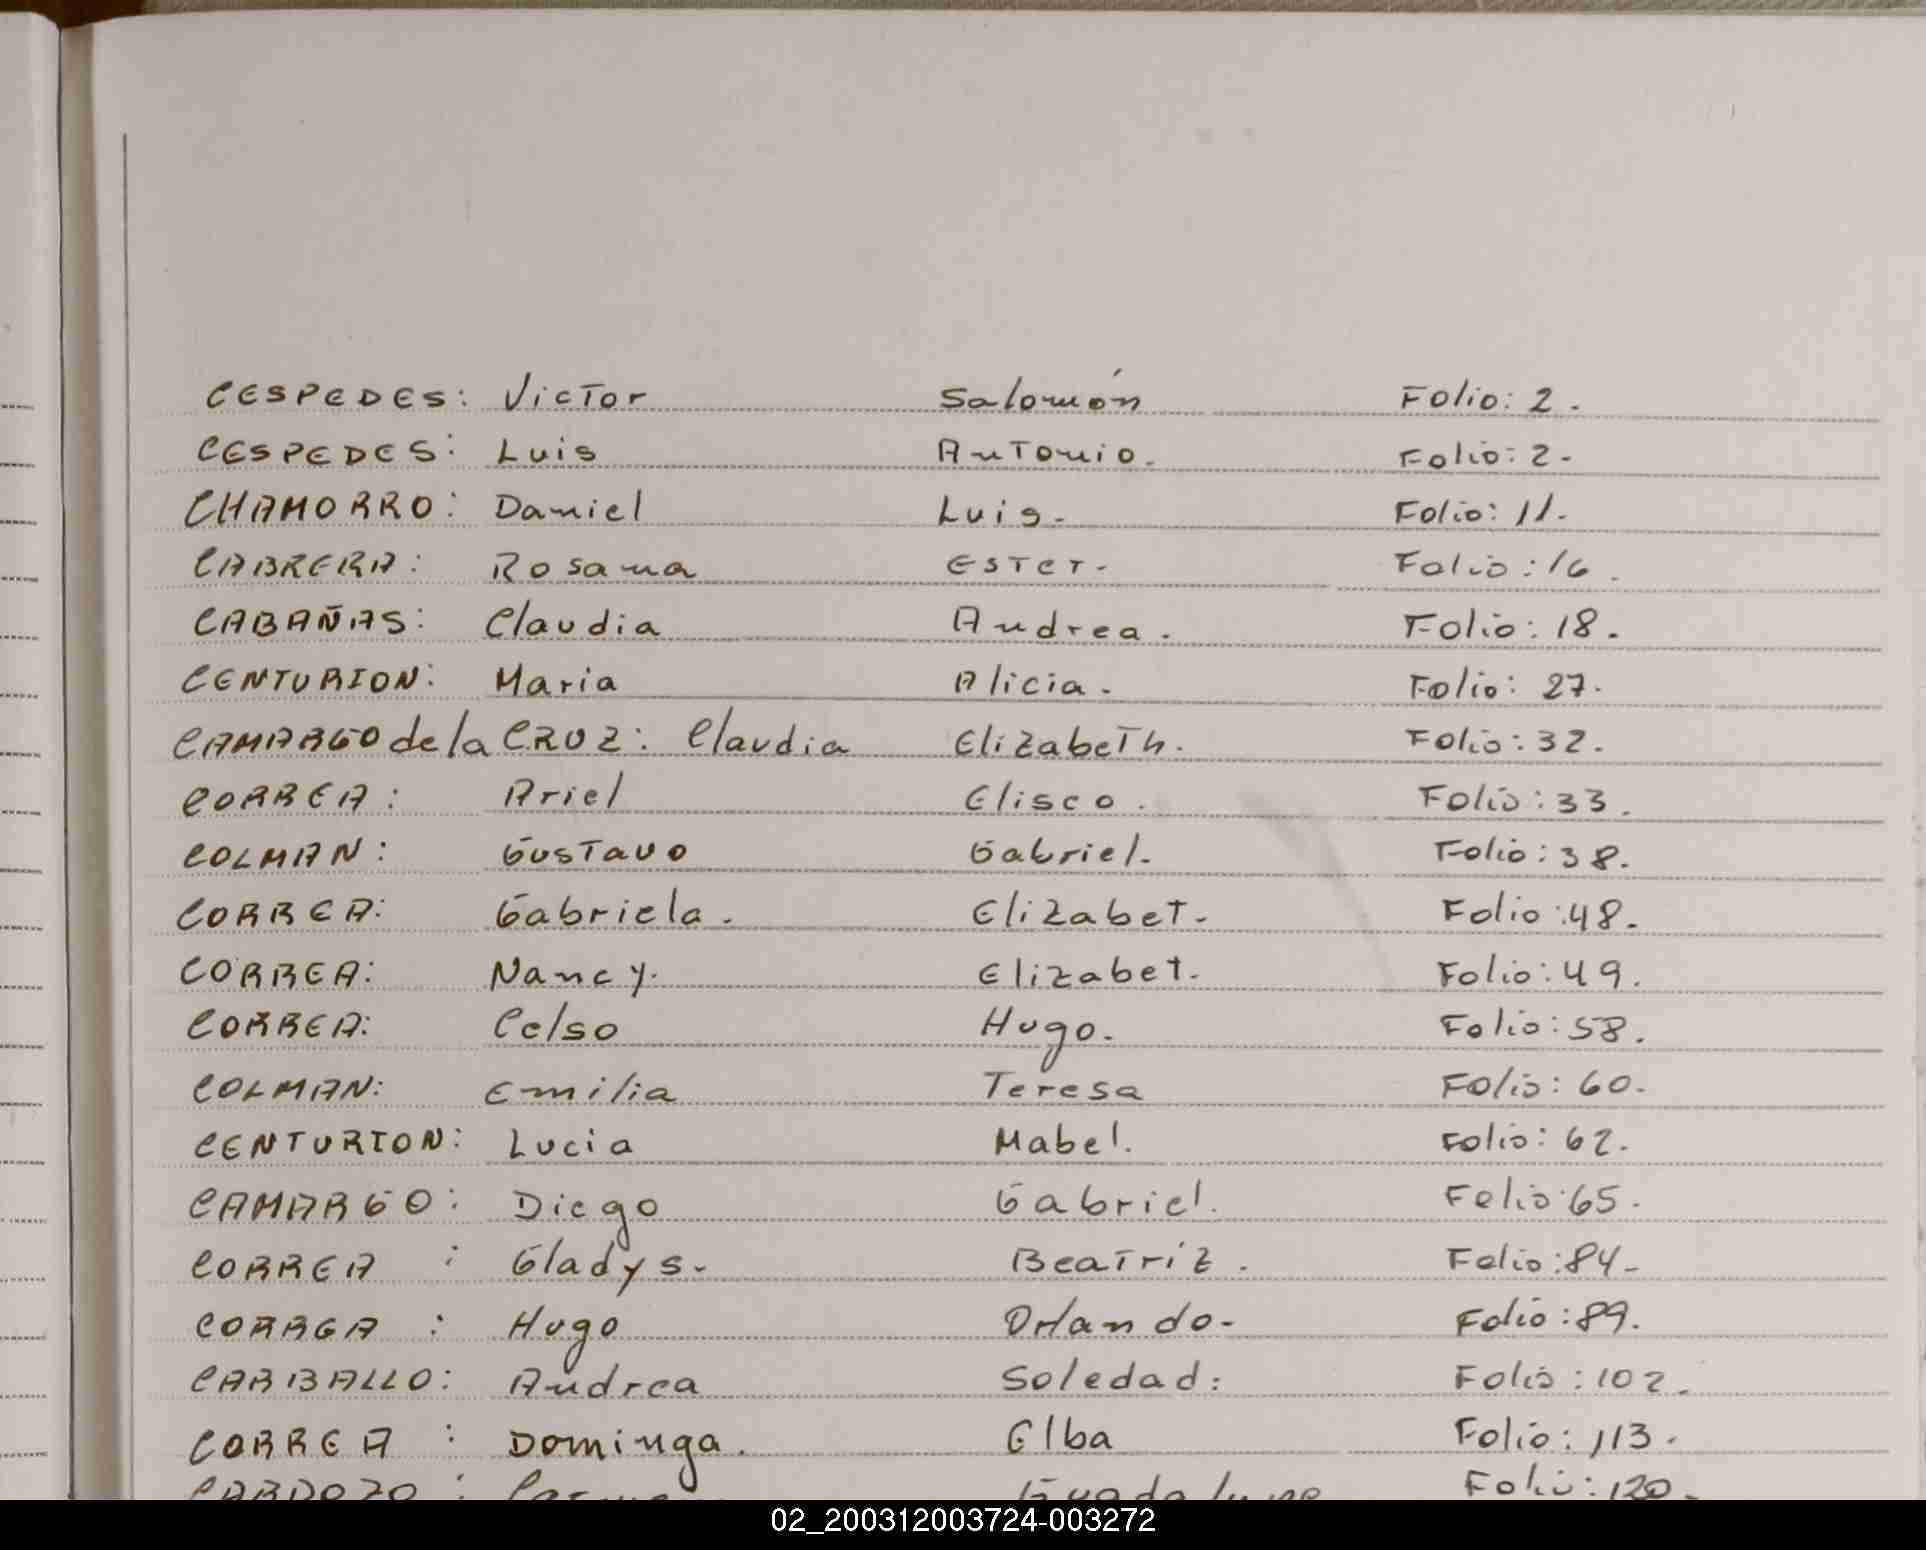 CESPEDES: Victor Salomón Folio: 2.
CESPEDES: Luis Antonio. Folio: 2-
CHAMORRO: Daniel Luis. Folio: 11.
CABRERA: Rosana Ester. Folio: 16.
CABAÑAS: Claudia Andrea. Folio: 18.
CENTURION: Maria Alicia. Folio: 27.
CAMARGO de la CRUZ: Claudia Elizabeth. Folio: 32.
CORREA: Ariel Eliseo. Folio: 33.
COLMAN: Gustavo Gabriel. Folio: 38.
CORREA: Gabriela. Elizabet. Folio: 48.
CORREA: Nancy. Elizabet. Folio: 49.
CORREA: Celso Hugo. Folio: 58.
COLMAN: Emilia Teresa Folio: 60.
CENTURION: Lucia Mabel. Folio: 62.
CAMARGO: Diego Gabriel. Folio: 65.
CORREA : Gladys. Beatriz. Folio: 84-
CORREA : Hugo Orlando- Folio: 89.
CARBALLO: Andrea Soledad: Folio: 102.
CORREA : Dominga. Elba Folio: 113.
CARDOZO : Guadalupe Folio: 120.
02_200312003724-003272